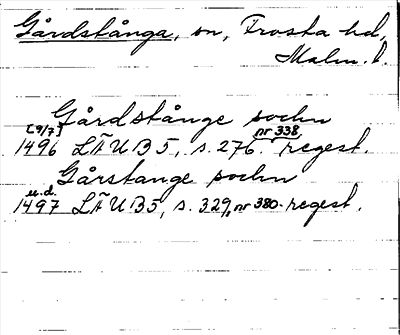 Gårdstånga, sn, Frosta hd,
Malm. l.
Gårdstånge sochn
[9/7]
1496 LÄUB 5, s. 276. nr 338 regest.
Gårstange sochn
u.d.
1497 LÄUB 5, s. 329, nr 380. regest.